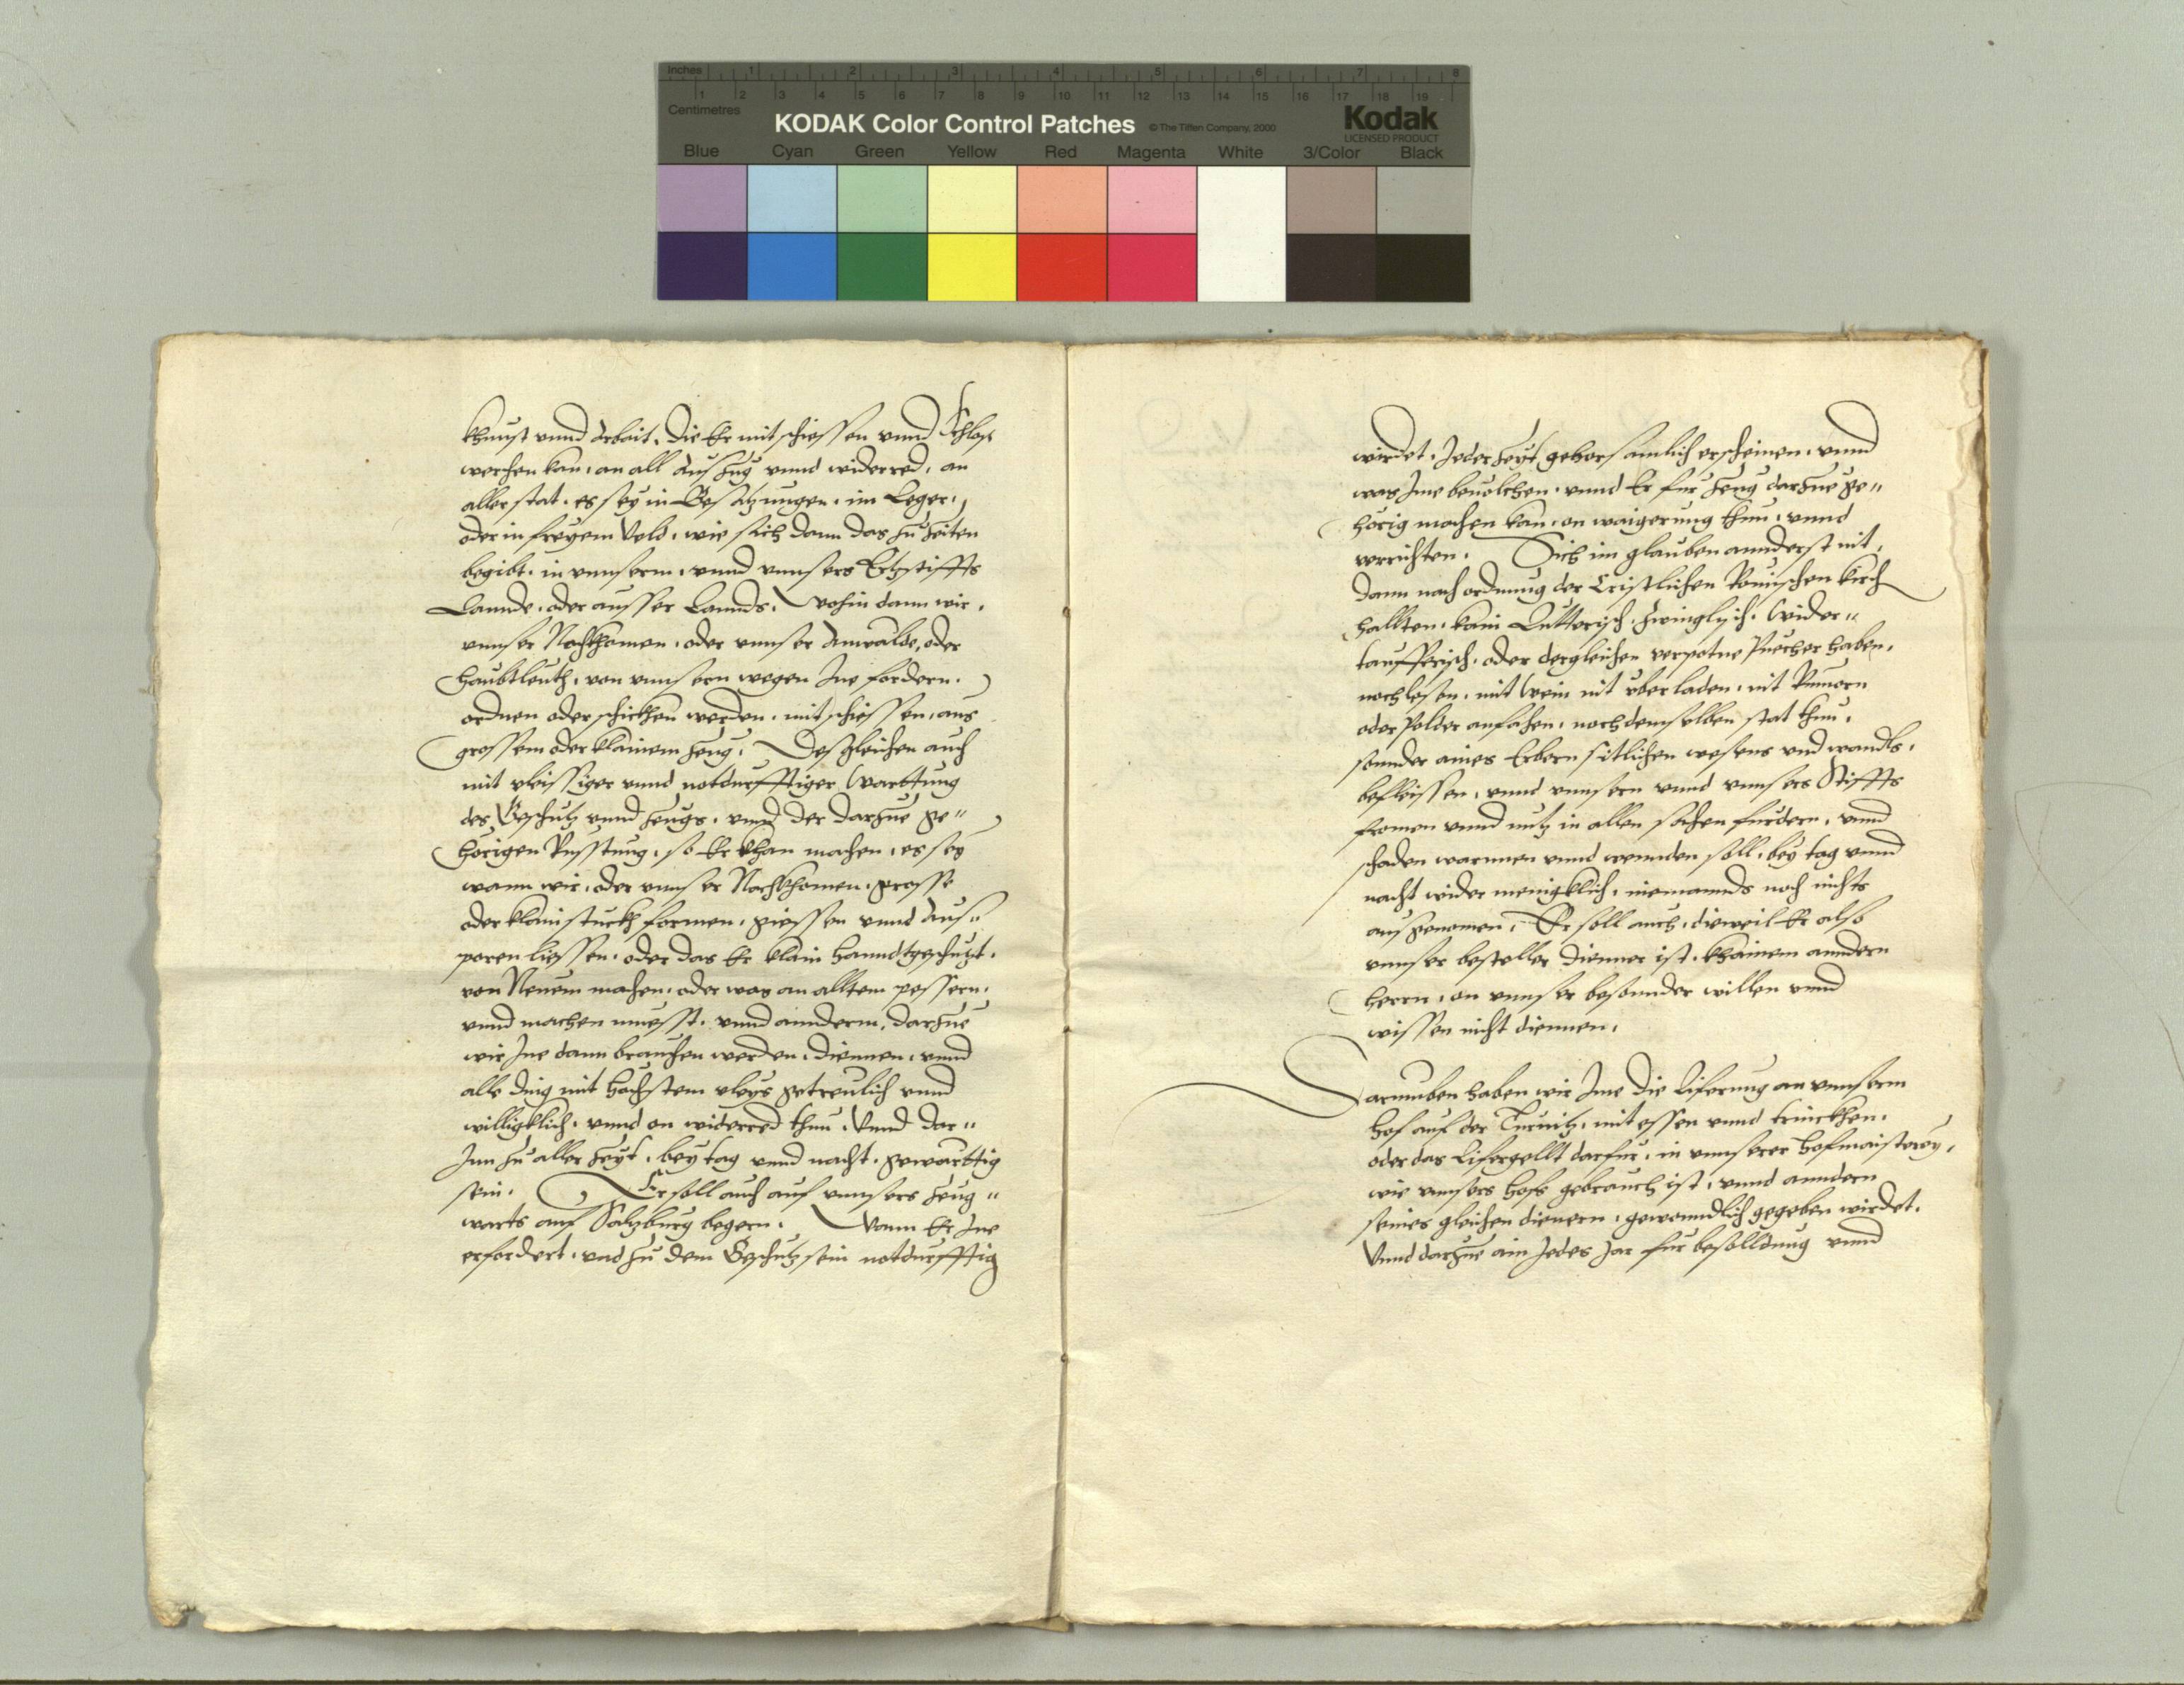 Inches 1 2 3 4 5 6 7 8
Centimetres 1 2 3 4 5 6 7 8 9 10 11 12 13 14 15 16 17 18 19
KODAK Color Control Patches © The Tiffen Company, 2000 Kodak
LICENSED PRODUCT
Blue Cyan Green Yellow Red Magenta White 3/Color Black
khunst vnnd Arbait, die Er mit schiessen vnnd Schlos
werchen kan, an all Auszug vnnd widerred, an
aller stat, es sey in Besatzungen, im Leger,
oder in freyem Veld, wie sich dann das zu Zeiten
begibt, in vnnserm, vnnd vnnsers Ertzstiffts
Lannde, oder ausser Lannds, wohin dann wir,
vnnser Nachkhomen, oder vnnser Anwälde, oder
haubtleuth, von vnnsern wegen Jne fordern,
ordnen oder schickhen werden, mit schiessen, aus
grossem oder klainem Zeug, Desgleichen auch
mit vleissiger vnnd notdurfftiger Warttung
des Geschutz vnnd Zeugs, vnnd der darzue ge"
hörigen Russtung, so Er khan machen, es sey
wann wir, oder vnnser Nachkhomen, grosse
oder klain stuckh formen, giessen vnnd Aus"
poren liessen, oder das Er klain hanndtgeschutz,
von Neuem machen, oder was an alltem pessern,
vnnd machen muesst, vnnd annderm, darzue
wir Jne dann brauchen werden, diennen, vnnd
alle ding mit höchstem vleys getreulich vnnd
willigklich, vnnd on widerred thun, Vnnd dar"
Jnn zu aller Zeyt, bey tag vnnd nacht, gewärttig
sein. Er soll auch auf vnnsers Zeug"
warts auf Salzburg begern, Wann Er Jne
erfordert, vnd zu dem Geschutz sein notdurfftig
wirdet, Jederzeyt gehorsamlich erscheinen, vnnd
was Jme beuolchen, vnnd Er fur Zeug darzue ge"
hörig machen kan, on waigerung thun, vnnd
verrichten. Sich im glauben annderst nit,
dann nach ordnung der Cristlichen Römischen Kirch
hallten, kain Lutterisch, Zwinglisch, Wider"
taufferisch, oder dergleichen verpotne Puecher haben,
noch lesen, mit Wein nit vberladen, nit Rumorn
oder Polder anfahen, noch demselben stat thun,
sonnder aines Erbern sitlichen wesens vnd wandls,
befleissen, vnnd vnnsern vnnd vnnsers Stiffts
fromen vnnd nutz in allen sachen furdern, vnnd
schaden warnnen vnnd wennden soll, bey tag vnnd
nacht wider menigklich, niemannds noch nichts
ausgenomen, Er soll auch, dieweil Er also
vnnser bestellter dienner ist, khainem anndern
herrn, on vnnser besonnder willen vnnd
wissen nicht diennen.
Darumben haben wir Jme die Liferung an vnnserm
hof auf der Turnitz, mit essen vnnd trinckhen,
oder das Lifergellt darfur, in vnnserer hofmaisterey,
wie vnnsers hofs gebrauch ist, vnnd anndern
seines gleichen dienern, gewonndlich gegeben wirdet,
Vnnd darzue ain Jedes Jar fur besolldung vnnd